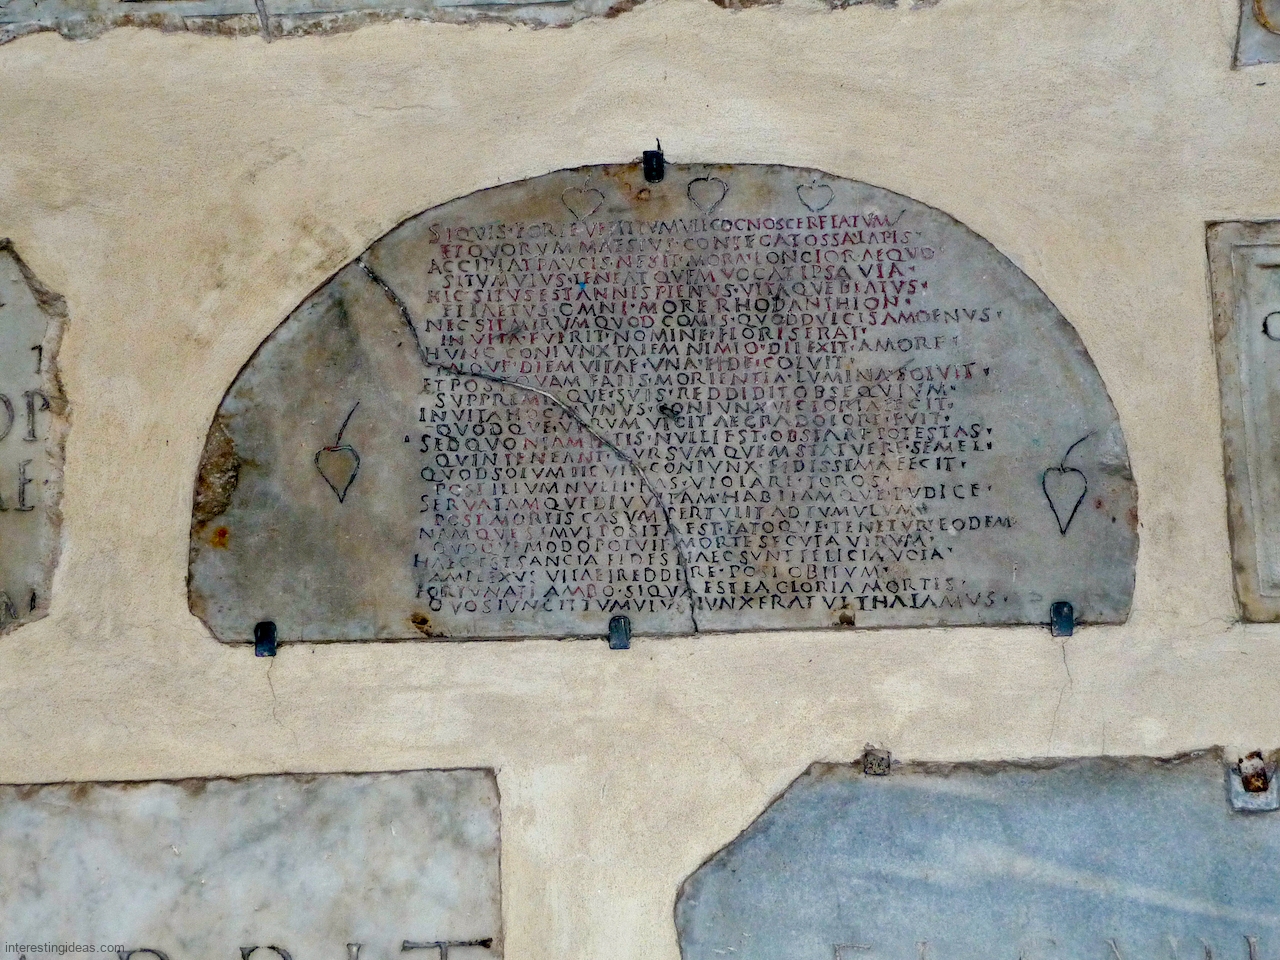 SI QVIS FORTE VELIT TVMVLI COGNOSCERE FATVM
ET QVORVM MAESTVS CONTEGAT OSSA LAPIS
ACCIPIAT PAVCIS NE SIT MORA LONGIOR AEQVO
SITVM VIVS TENEAT QVEM VOCAT IPSA VIA
HIC SITVS EST ANNIS PLENVS VITAQVE BEATVS
ET LAETVS OMNI MORE RHODANTHION
NEC SIT MIRVM QVOD COMIS QVOD DVLCIS AMOENVS
IN VITA FVERIT NOMINE FLORIS ERAT
HVNC CONIVNX TALEM NIMIO DILEXIT AMORE
VNA FIDE COLVIT
ET POST VAM FATIS MORIENTIA LVMINA SOLVIT
SVPPREMVM QVE SVIS REDDIDIT OBSEQVIVM
INVITA HOC MVNVS CONIVNX VICTORIA FECIT
QVOD QVE VIRVM VICIT AEGRA DOLORE FVIT
SED QVONIAM FATIS NVLLI EST OBSTARE POTESTAS
QVIN TENEANT CVRSVM QVEM STATVERE SEMEL
QVOD SOLVM LICVIT CONIVNX FIDISSIMA FECIT
POST ILLVM NVLLI FAS VIOLARE TOROS
SERVATAMQVE DIV TAM HABITAMQVE PVDICE
POST MORTIS CASVM PERTVLIT AD TVMVLVM
NAMQVE SIMVL POSITA EST FATOQVE TENETVR EODEM
QVOQVE MODO POTVIT MORTE SECVTA VIRVM
HAEC EST SANCTA FIDES HAEC SVNT FELICIA VOTA
AMPLEXVS VITAE REDDERE POST OBITVM
FORTVNATI AMBO SI QVA EST EA GLORIA MORTIS
QVOS IVNGIT TVMVLVS IVNXERAT VT THALAMVS
interestingideas.com